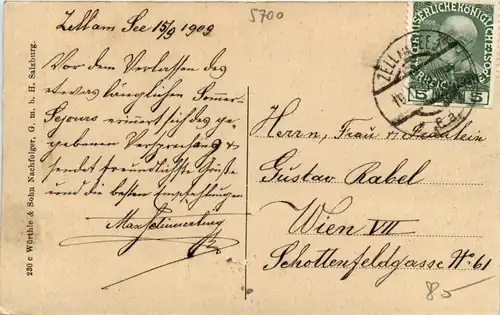 5700
Zell am See 15/9 1909
Vor dem Verlassen des
etwas länglichen Sommer-
Sejours erinnert sich des ge-
gebenen Versprechens &
sendet freundlichste Grüße
und die besten Empfehlungen
KAISERLICHE KÖNIGLICHE
5 5
ZELL AM SEE
Herrn, Frau & Fräulein
Gustav Rabel
Wien VII
Schottenfeldgasse No 61
85
230 c Würthle & Sohn Nachfolger, G. m. b. H. Salzburg.